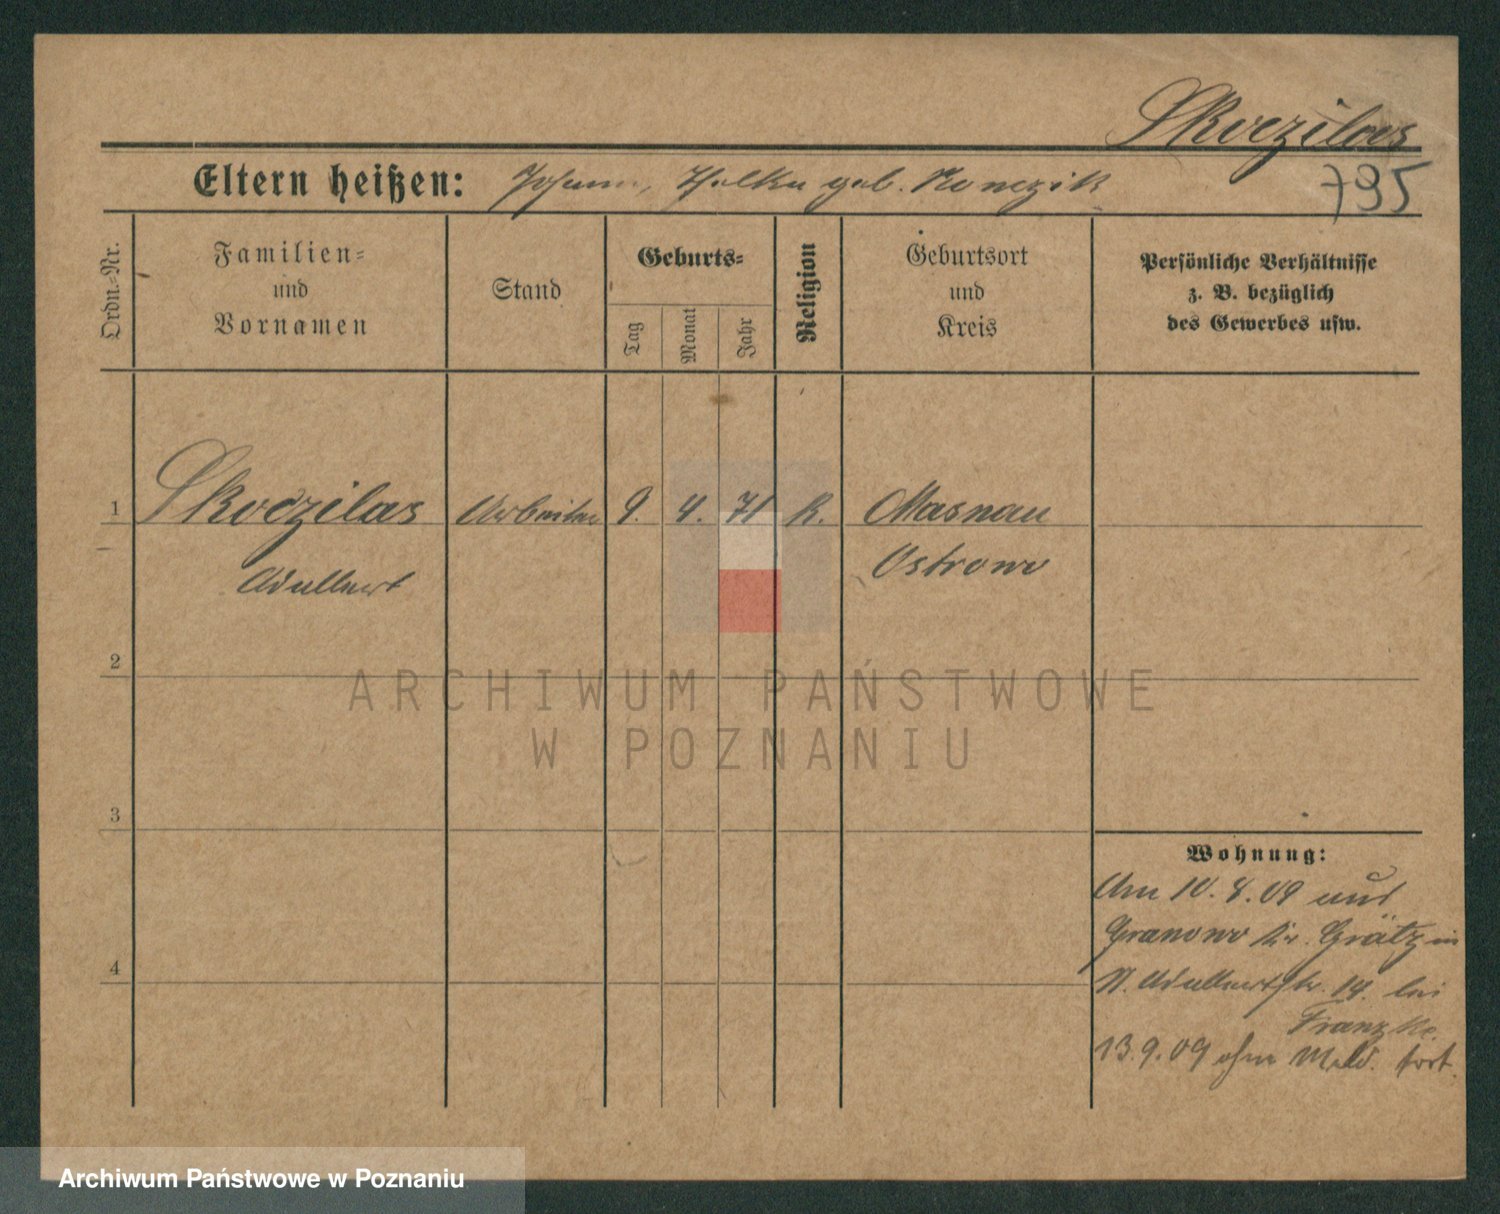 Skoczilas
Eltern heißen: Johann, Thelka geb. Konczik
795
Ordn.-Nr.
Familien-
und
Vornamen
Stand
Geburts-
Tag
Monat
Jahr
Religion
Geburtsort
und
Kreis
Persönliche Verhältnisse
z. B. bezüglich
des Gewerbes usw.
1 Skoczilas Arbeiter 9. 4. 71 K. Masnau
Adalbert Ostrowo
2
3
4
Wohnung:
Am 10.8.09 aus
Granowo Kr. Grätz in
Adalbertstr. 14. bei
Franzke
13.9.09 ohne Meld. fort.
ARCHIWUM PAŃSTWOWE
W POZNANIU
Archiwum Państwowe w Poznaniu